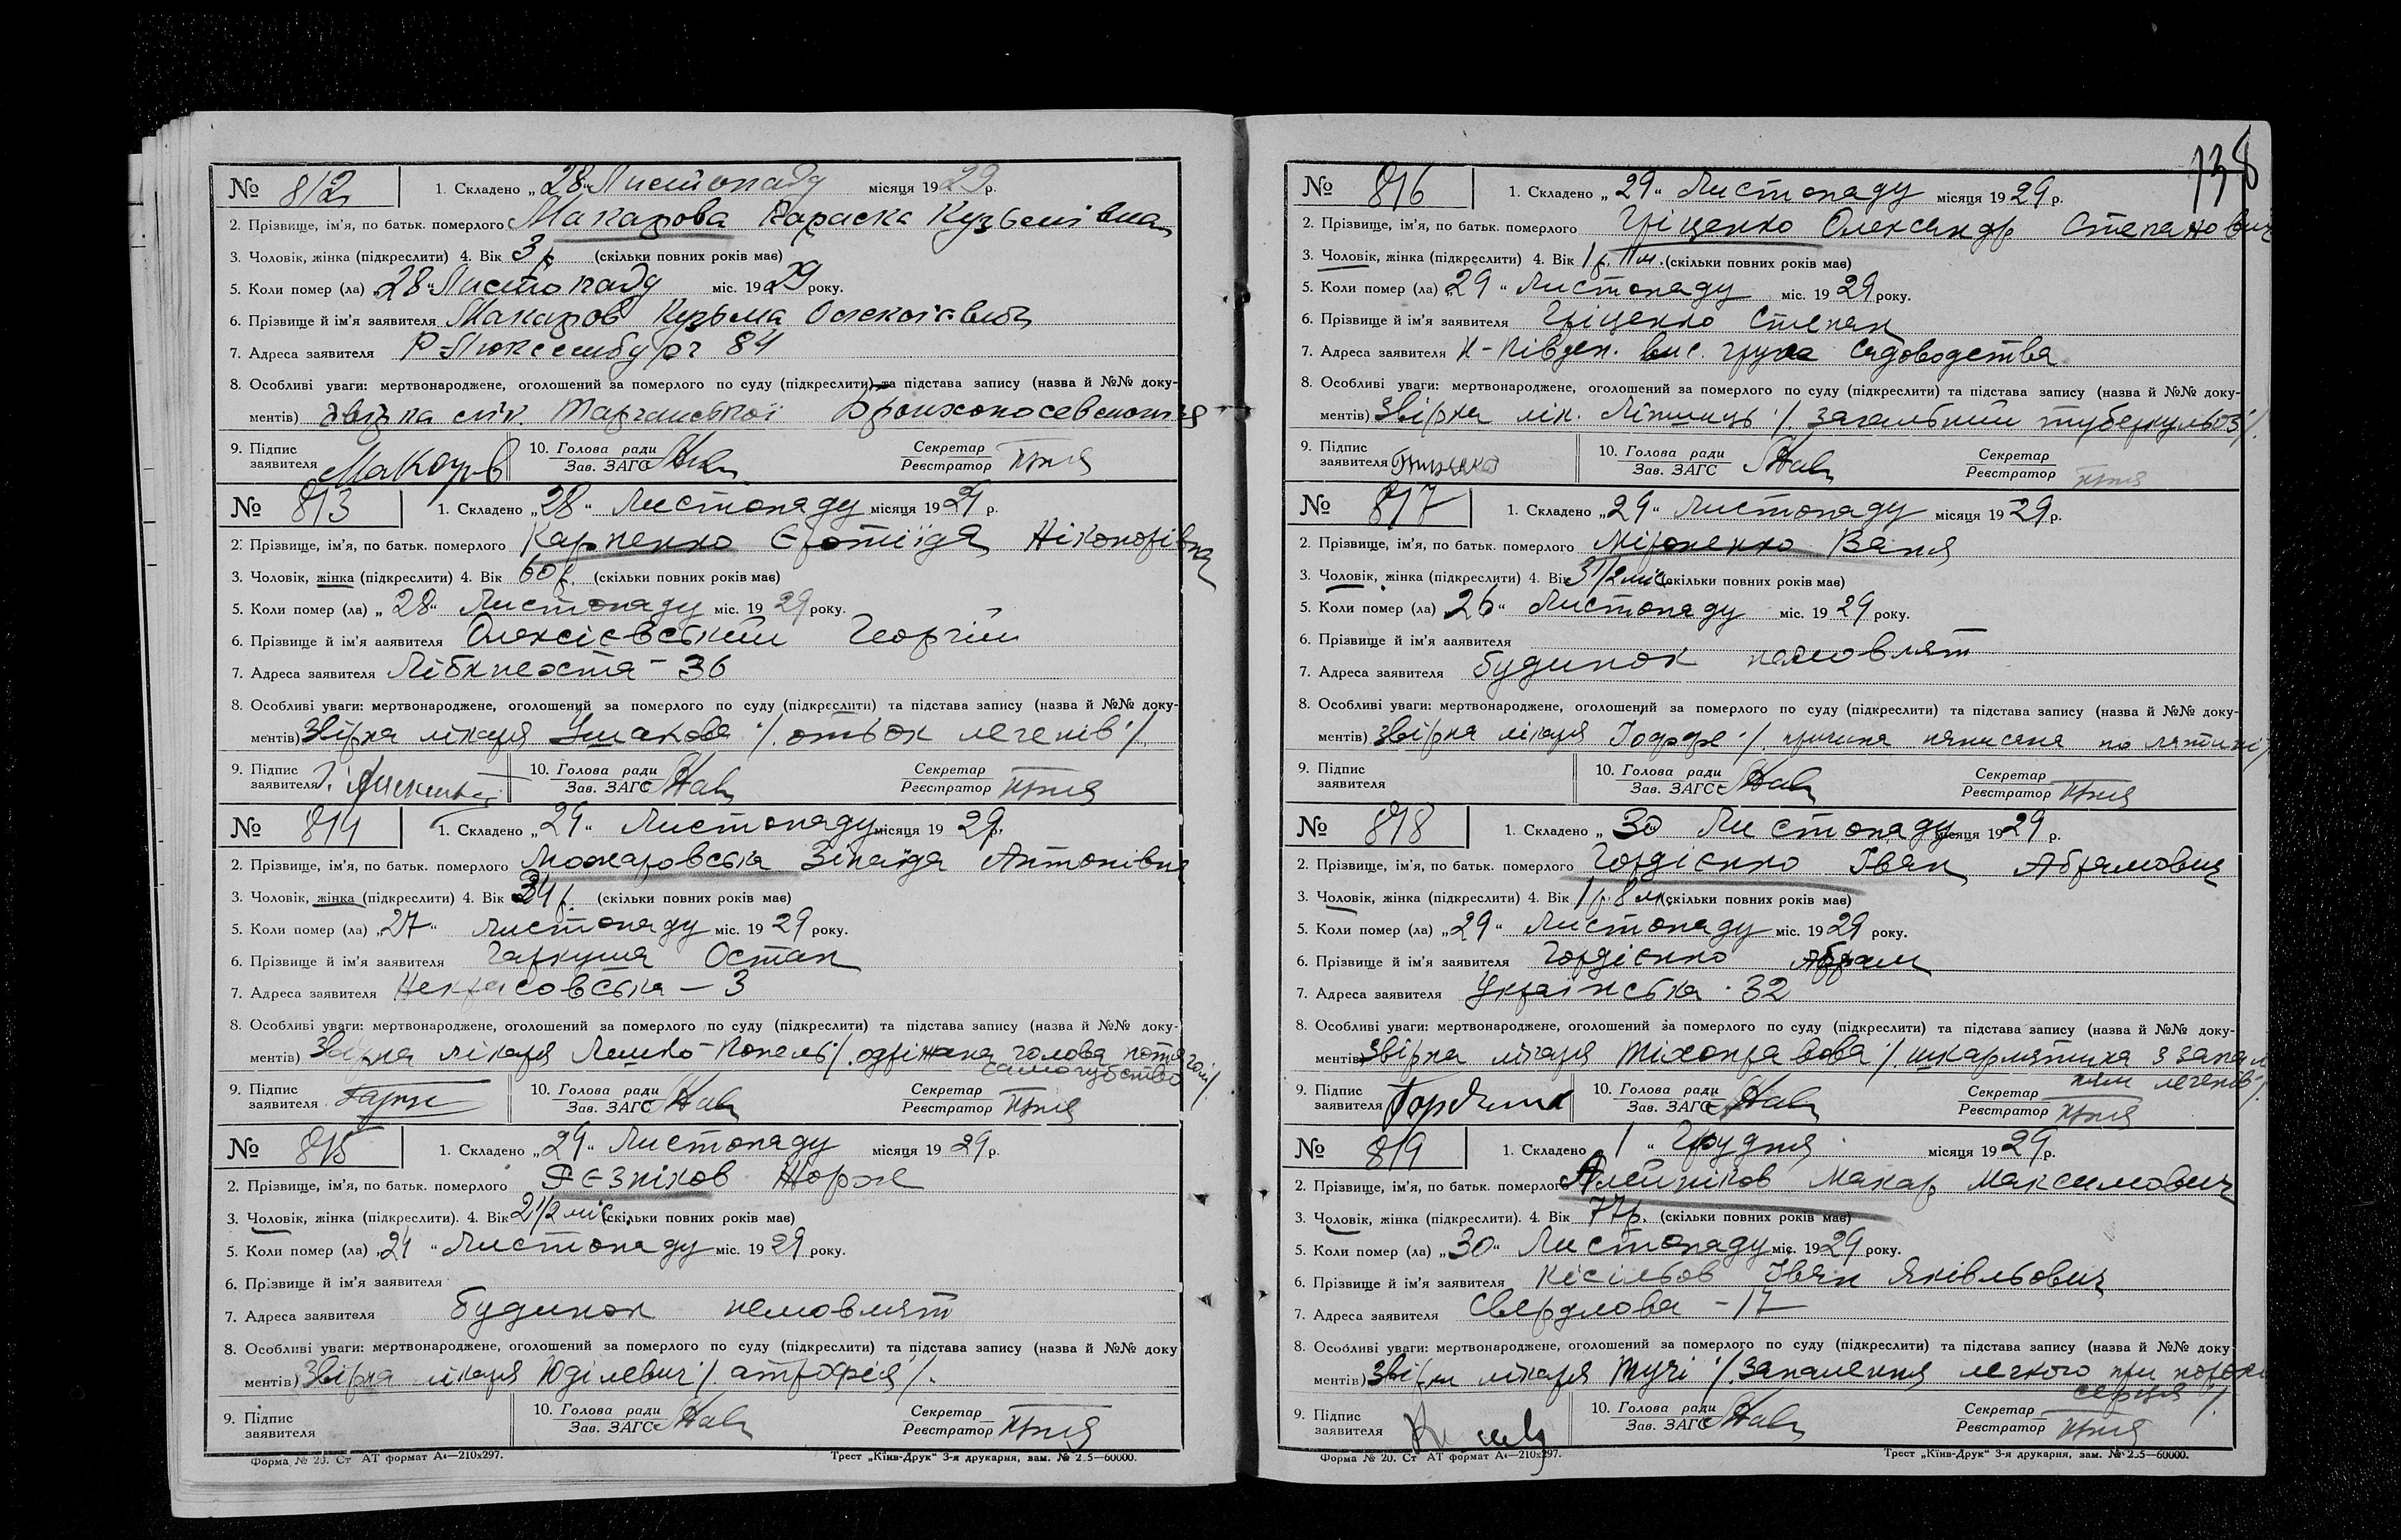 № 812 1. Складено „28“ Листопаду місяця 1929 р.
2. Прізвище, ім'я, по батьк. померлого Макарова Параска Кузьмівна
3. Чоловік, жінка (підкреслити) 4. Вік 3 р. (скільки повних років має)
5. Коли помер (ла) „28“ Листопаду міс. 1929 року.
6. Прізвище й ім'я заявителя Макаров Кузьма
7. Адреса заявителя Р-Люксембург 84
8. Особливі уваги: мертвонароджене, оголошений за померлого по суду (підкреслити) та підстава запису (назва й №№ доку-
ментів) Звірка лік.
9. Підпис заявителя Макаров 10. Голова ради Зав. ЗАГС Секретар Реєстратор
№ 813 1. Складено „28“ Листопаду місяця 1929 р.
2. Прізвище, ім'я, по батьк. померлого Карпенко Єротіїда Ніконорівна
3. Чоловік, жінка (підкреслити) 4. Вік 60 р. (скільки повних років має)
5. Коли помер (ла) „28“ Листопаду міс. 1929 року.
6. Прізвище й ім'я заявителя Олексієвський Георгій
7. Адреса заявителя Лібкнехта - 36
8. Особливі уваги: мертвонароджене, оголошений за померлого по суду (підкреслити) та підстава запису (назва й №№ доку-
ментів) Звірка лікаря Ушакова /. отьок легенів /.
9. Підпис заявителя 10. Голова ради Зав. ЗАГС Секретар Реєстратор
№ 814 1. Складено „29“ Листопаду місяця 1929 р.
2. Прізвище, ім'я, по батьк. померлого Можаровська Зінаїда Антонівна
3. Чоловік, жінка (підкреслити) 4. Вік 34 р. (скільки повних років має)
5. Коли помер (ла) „27“ Листопаду міс. 1929 року.
6. Прізвище й ім'я заявителя Гаркуша Остап
7. Адреса заявителя Некрасовська - 3
8. Особливі уваги: мертвонароджене, оголошений за померлого по суду (підкреслити) та підстава запису (назва й №№ доку-
ментів) Звірка лікаря /. одрізана голова потягом
самогубство /.
9. Підпис заявителя 10. Голова ради Зав. ЗАГС Секретар Реєстратор
№ 815 1. Складено „29“ Листопаду місяця 1929 р.
2. Прізвище, ім'я, по батьк. померлого Рєзніков Жорж
3. Чоловік, жінка (підкреслити). 4. Вік 2 1/2 міс. (скільки повних років має)
5. Коли помер (ла) „21“ Листопаду міс. 1929 року.
6. Прізвище й ім'я заявителя
7. Адреса заявителя будинок немовлят
8. Особливі уваги: мертвонароджене, оголошений за померлого по суду (підкреслити) та підстава запису (назва й №№ доку
ментів) Звірка лікаря Юділевич /. атрофія /.
9. Підпис заявителя 10. Голова ради Зав. ЗАГС Секретар Реєстратор
Форма № 20. Ст АТ формат А4—210x297. Трест „Київ-Друк“ 3-я друкарня, зам. № 2.5—60000.
138
№ 816 1. Складено „29“ Листопаду місяця 1929 р.
2. Прізвище, ім'я, по батьк. померлого Гріценко Олександр Степанович
3. Чоловік, жінка (підкреслити) 4. Вік 1 р. 11 м. (скільки повних років має)
5. Коли помер (ла) „29“ Листопаду міс. 1929 року.
6. Прізвище й ім'я заявителя Гріценко Степан
7. Адреса заявителя Н-Півден. вис. група садоводства
8. Особливі уваги: мертвонароджене, оголошений за померлого по суду (підкреслити) та підстава запису (назва й №№ доку-
ментів) Звірка лік. /. загальний туберкульоз /.
9. Підпис заявителя 10. Голова ради Зав. ЗАГС Секретар Реєстратор
№ 817 1. Складено „29“ Листопаду місяця 1929 р.
2. Прізвище, ім'я, по батьк. померлого Міроненко Ваня
3. Чоловік, жінка (підкреслити) 4. Вік 3 1/2 міс. (скільки повних років має)
5. Коли помер (ла) „26“ Листопаду міс. 1929 року.
6. Прізвище й ім'я заявителя
7. Адреса заявителя будинок немовлят
8. Особливі уваги: мертвонароджене, оголошений за померлого по суду (підкреслити) та підстава запису (назва й №№ доку-
ментів) Звірка лікаря Іоффе /. причина написана по латині /
9. Підпис заявителя 10. Голова ради Зав. ЗАГС Секретар Реєстратор
№ 818 1. Складено „30 Листопаду місяця 1929 р.
2. Прізвище, ім'я, по батьк. померлого Гордієнко Іван Абрамович
3. Чоловік, жінка (підкреслити) 4. Вік 1 р. 8 м. (скільки повних років має)
5. Коли помер (ла) „29“ Листопаду міс. 1929 року.
6. Прізвище й ім'я заявителя Гордієнко Абрам
7. Адреса заявителя Українська - 32
8. Особливі уваги: мертвонароджене, оголошений за померлого по суду (підкреслити) та підстава запису (назва й №№ доку-
ментів) Звірка лікаря Тіхонравова /. шкарлятина з запале
ням легенів /.
9. Підпис заявителя 10. Голова ради Зав. ЗАГС Секретар Реєстратор
№ 819 1. Складено 1 “ Грудня місяця 1929 р.
2. Прізвище, ім'я, по батьк. померлого Алейніков Макар Максимович
3. Чоловік, жінка (підкреслити). 4. Вік 77 р. (скільки повних років має)
5. Коли помер (ла) „30“ Листопаду міс. 1929 року.
6. Прізвище й ім'я заявителя Кісільов Іван Яківльович
7. Адреса заявителя Свердлова - 17
8. Особливі уваги: мертвонароджене, оголошений за померлого по суду (підкреслити) та підстава запису (назва й №№ доку
ментів) Звірка лікаря Тучі /. запалення легкого при порокі
серця /.
9. Підпис заявителя 10. Голова ради Зав. ЗАГС Секретар Реєстратор
Форма № 20. Ст АТ формат А4—210x297. Трест „Київ-Друк“ 3-я друкарня, зам. № 2.5—60000.